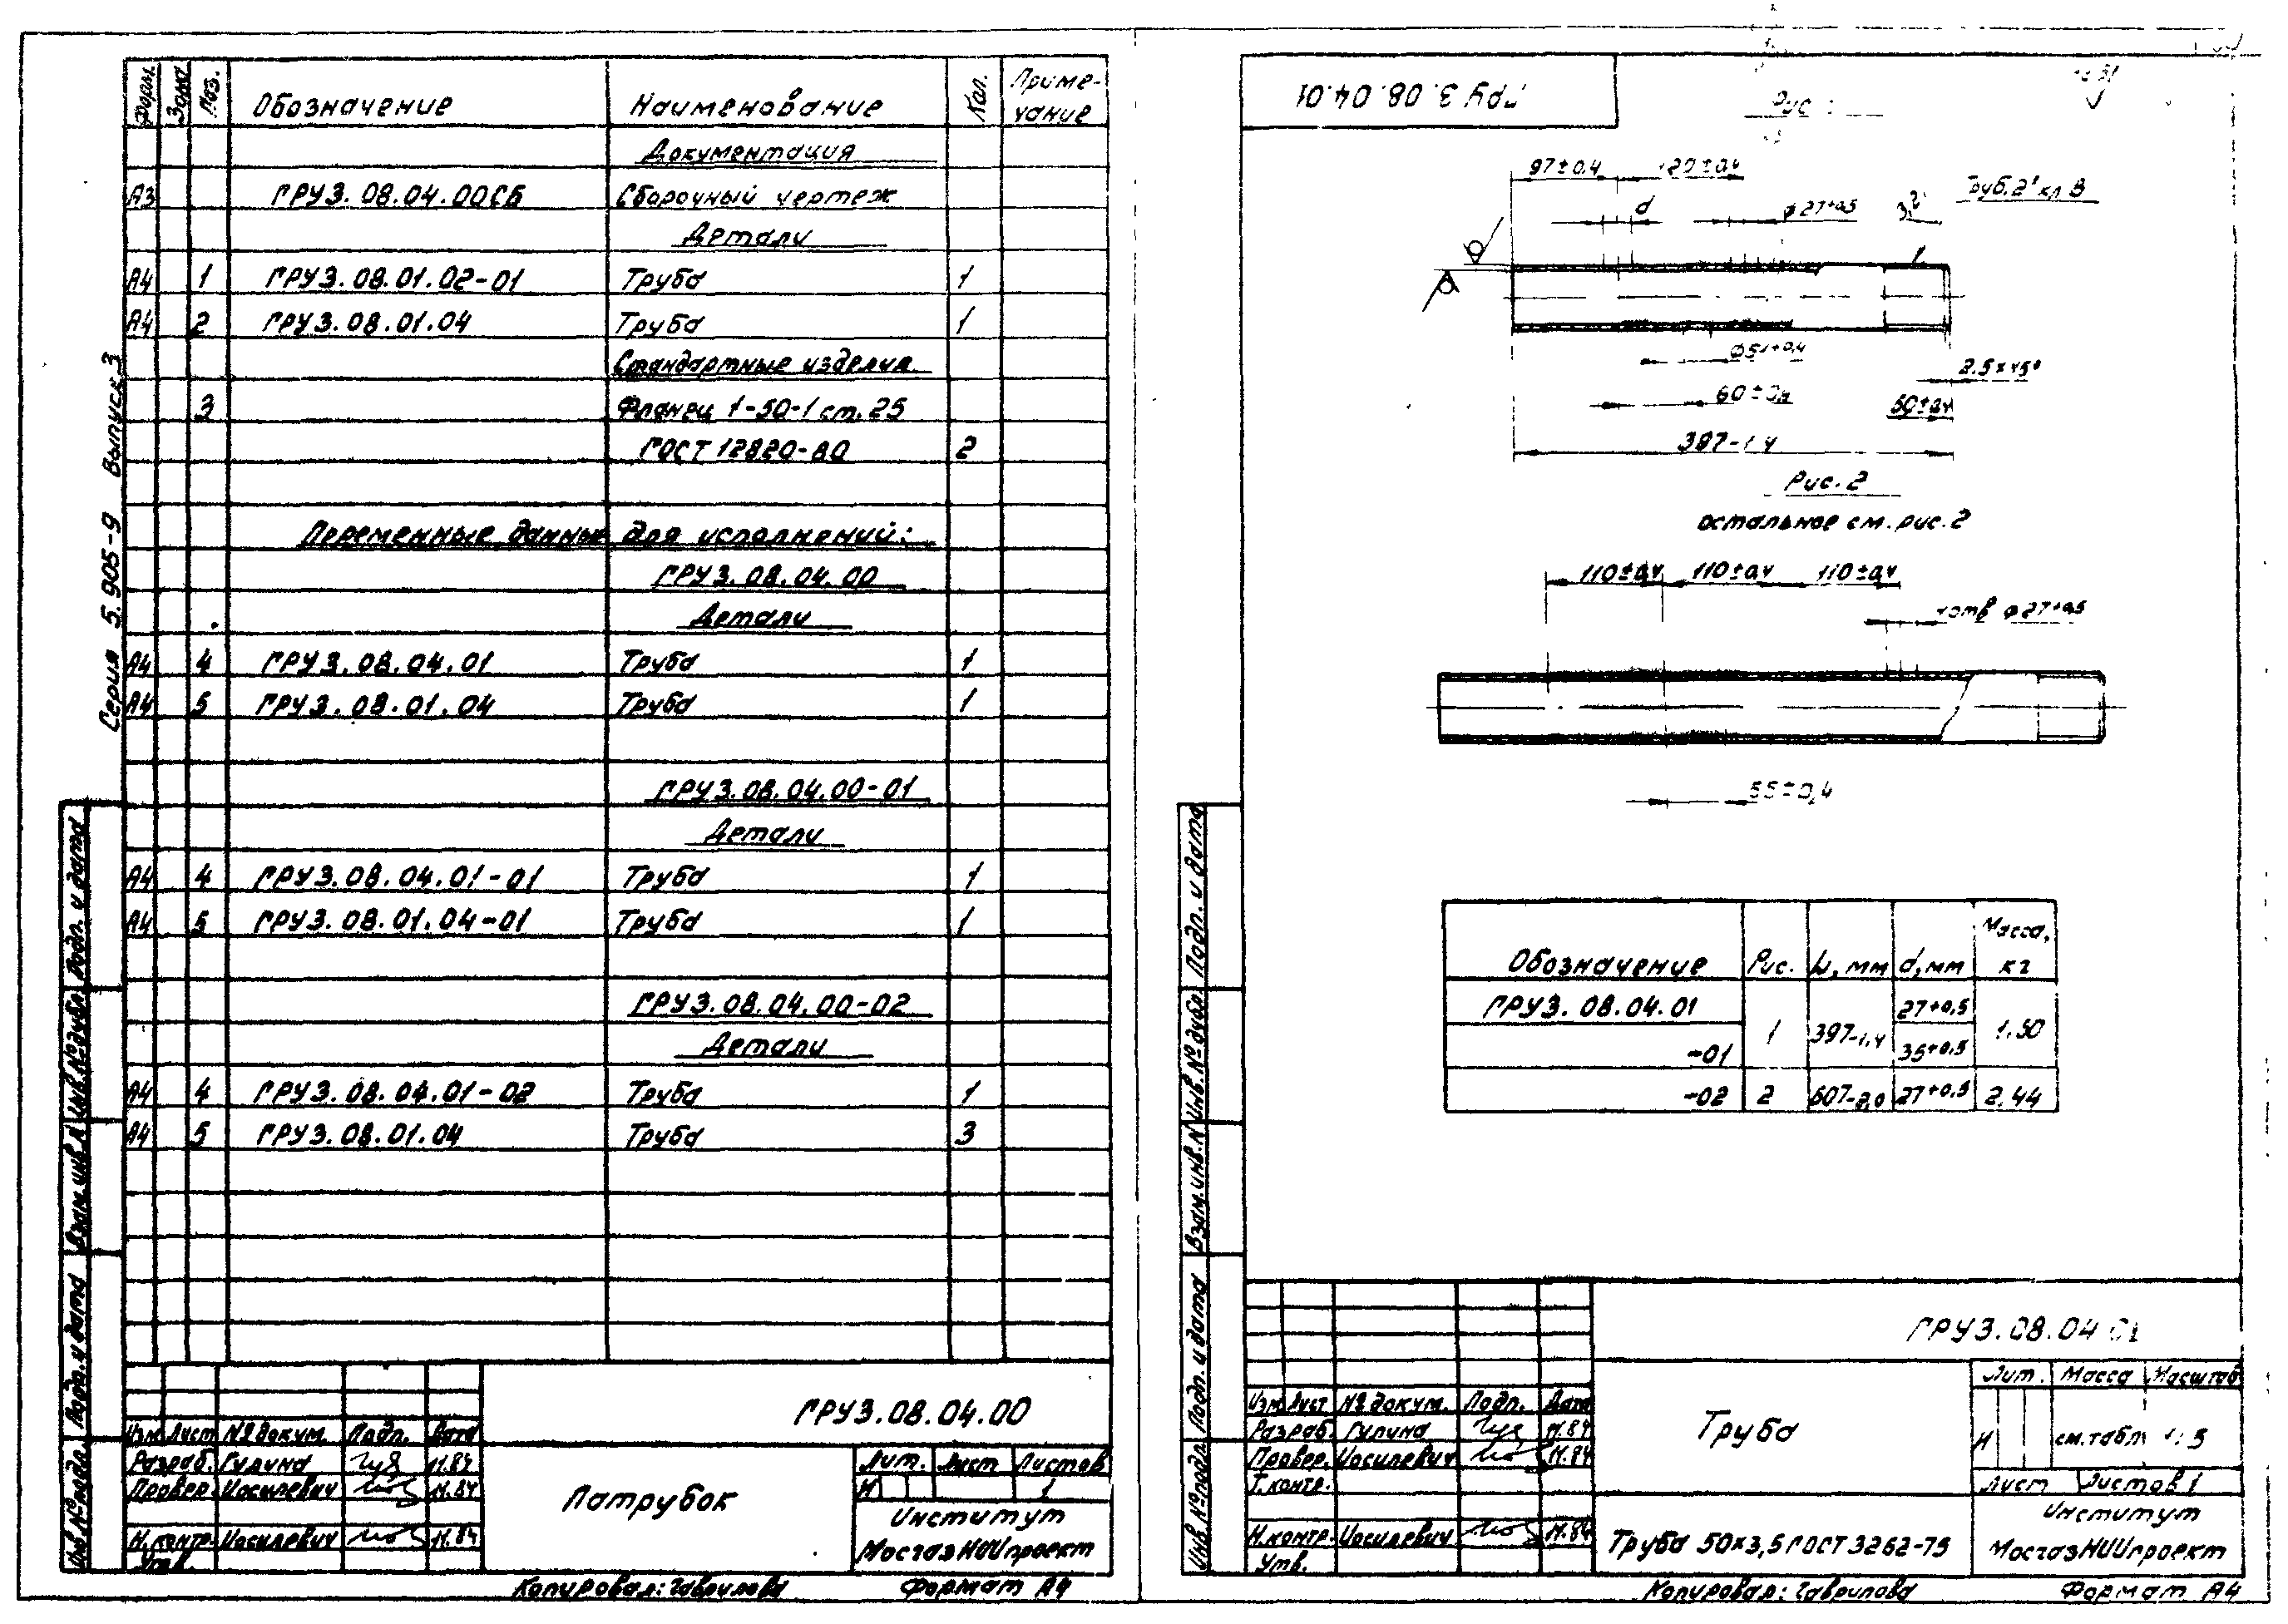 Серия 5.905-9 Выпуск 3
Форм. Зона Поз. Обозначение Наименование Кол. Приме-
чание
Документация
А3 ГРУЗ.08.04.00СБ Сборочный чертеж
Детали
А4 1 ГРУЗ.08.01.02-01 Труба 1
А4 2 ГРУЗ.08.01.04 Труба 1
Стандартные изделия
3 Фланец 1-50-1 ст.25
ГОСТ 12820-80 2
Переменные данные для исполнений:
ГРУЗ.08.04.00
Детали
А4 4 ГРУЗ.08.04.01 Труба 1
А4 5 ГРУЗ.08.01.04 Труба 1
ГРУЗ.08.04.00-01
Детали
А4 4 ГРУЗ.08.04.01-01 Труба 1
А4 5 ГРУЗ.08.01.04-01 Труба 1
ГРУЗ.08.04.00-02
Детали
А4 4 ГРУЗ.08.04.01-02 Труба 1
А4 5 ГРУЗ.08.01.04 Труба 3
Подп. и дата
Инв.№дубл.
Взам.инв.№
Подп. и дата
Инв.№подл.
ГРУЗ.08.04.00
Изм Лист №докум. Подп. Дата
Разраб. Гулина 11.84
Провер. Иосилевич 11.84
Н.контр. Иосилевич 11.84
Утв.
Патрубок
Лит. Лист Листов
И 1
Институт
МосгазНИИпроект
Копировал: Гаврилова Формат А4
ГРУЗ.08.04.01
Рис
97±0,4 120±0,4
d ф27+0,5 3,2 Труб.2" кл.В
ф51+0,4
2,5×45°
60±0,4 60±0,4
397-1,4
Рис.2
Остальное см. рис.2
110±0,4 110±0,4 110±0,4
отв ф27+0,5
55±0,4
Обозначение Рис. L, мм d, мм Масса,
кг
ГРУЗ.08.04.01 1 397-1,4 27+0,5 1.50
-01 35+0,5
-02 2 607-2,0 27+0,5 2.44
Подп. и дата
Инв.№дубл.
Взам.инв.№
Подп. и дата
Инв.№подл.
ГРУЗ.08.04.01
Изм Лист №докум. Подп. Дата
Разраб. Гулина 11.84
Провер. Иосилевич 11.84
Т.контр.
Н.контр. Иосилевич 11.84
Утв.
Труба
Лит. Масса Масштаб
И см.табл 1:5
Лист Листов 1
Труба 50×3,5 ГОСТ 3262-75
Институт
МосгазНИИпроект
Копировал: Гаврилова Формат А4